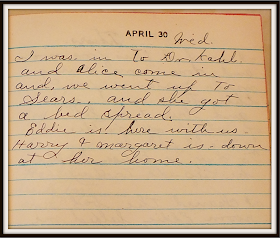 APRIL 30 Wed.
I was in to Dr. Kahl
and Alice come in
and, we went up to
Sears, and she got
a bed spread.
Eddie is here with us.
Harry & Margaret is down
at her home.